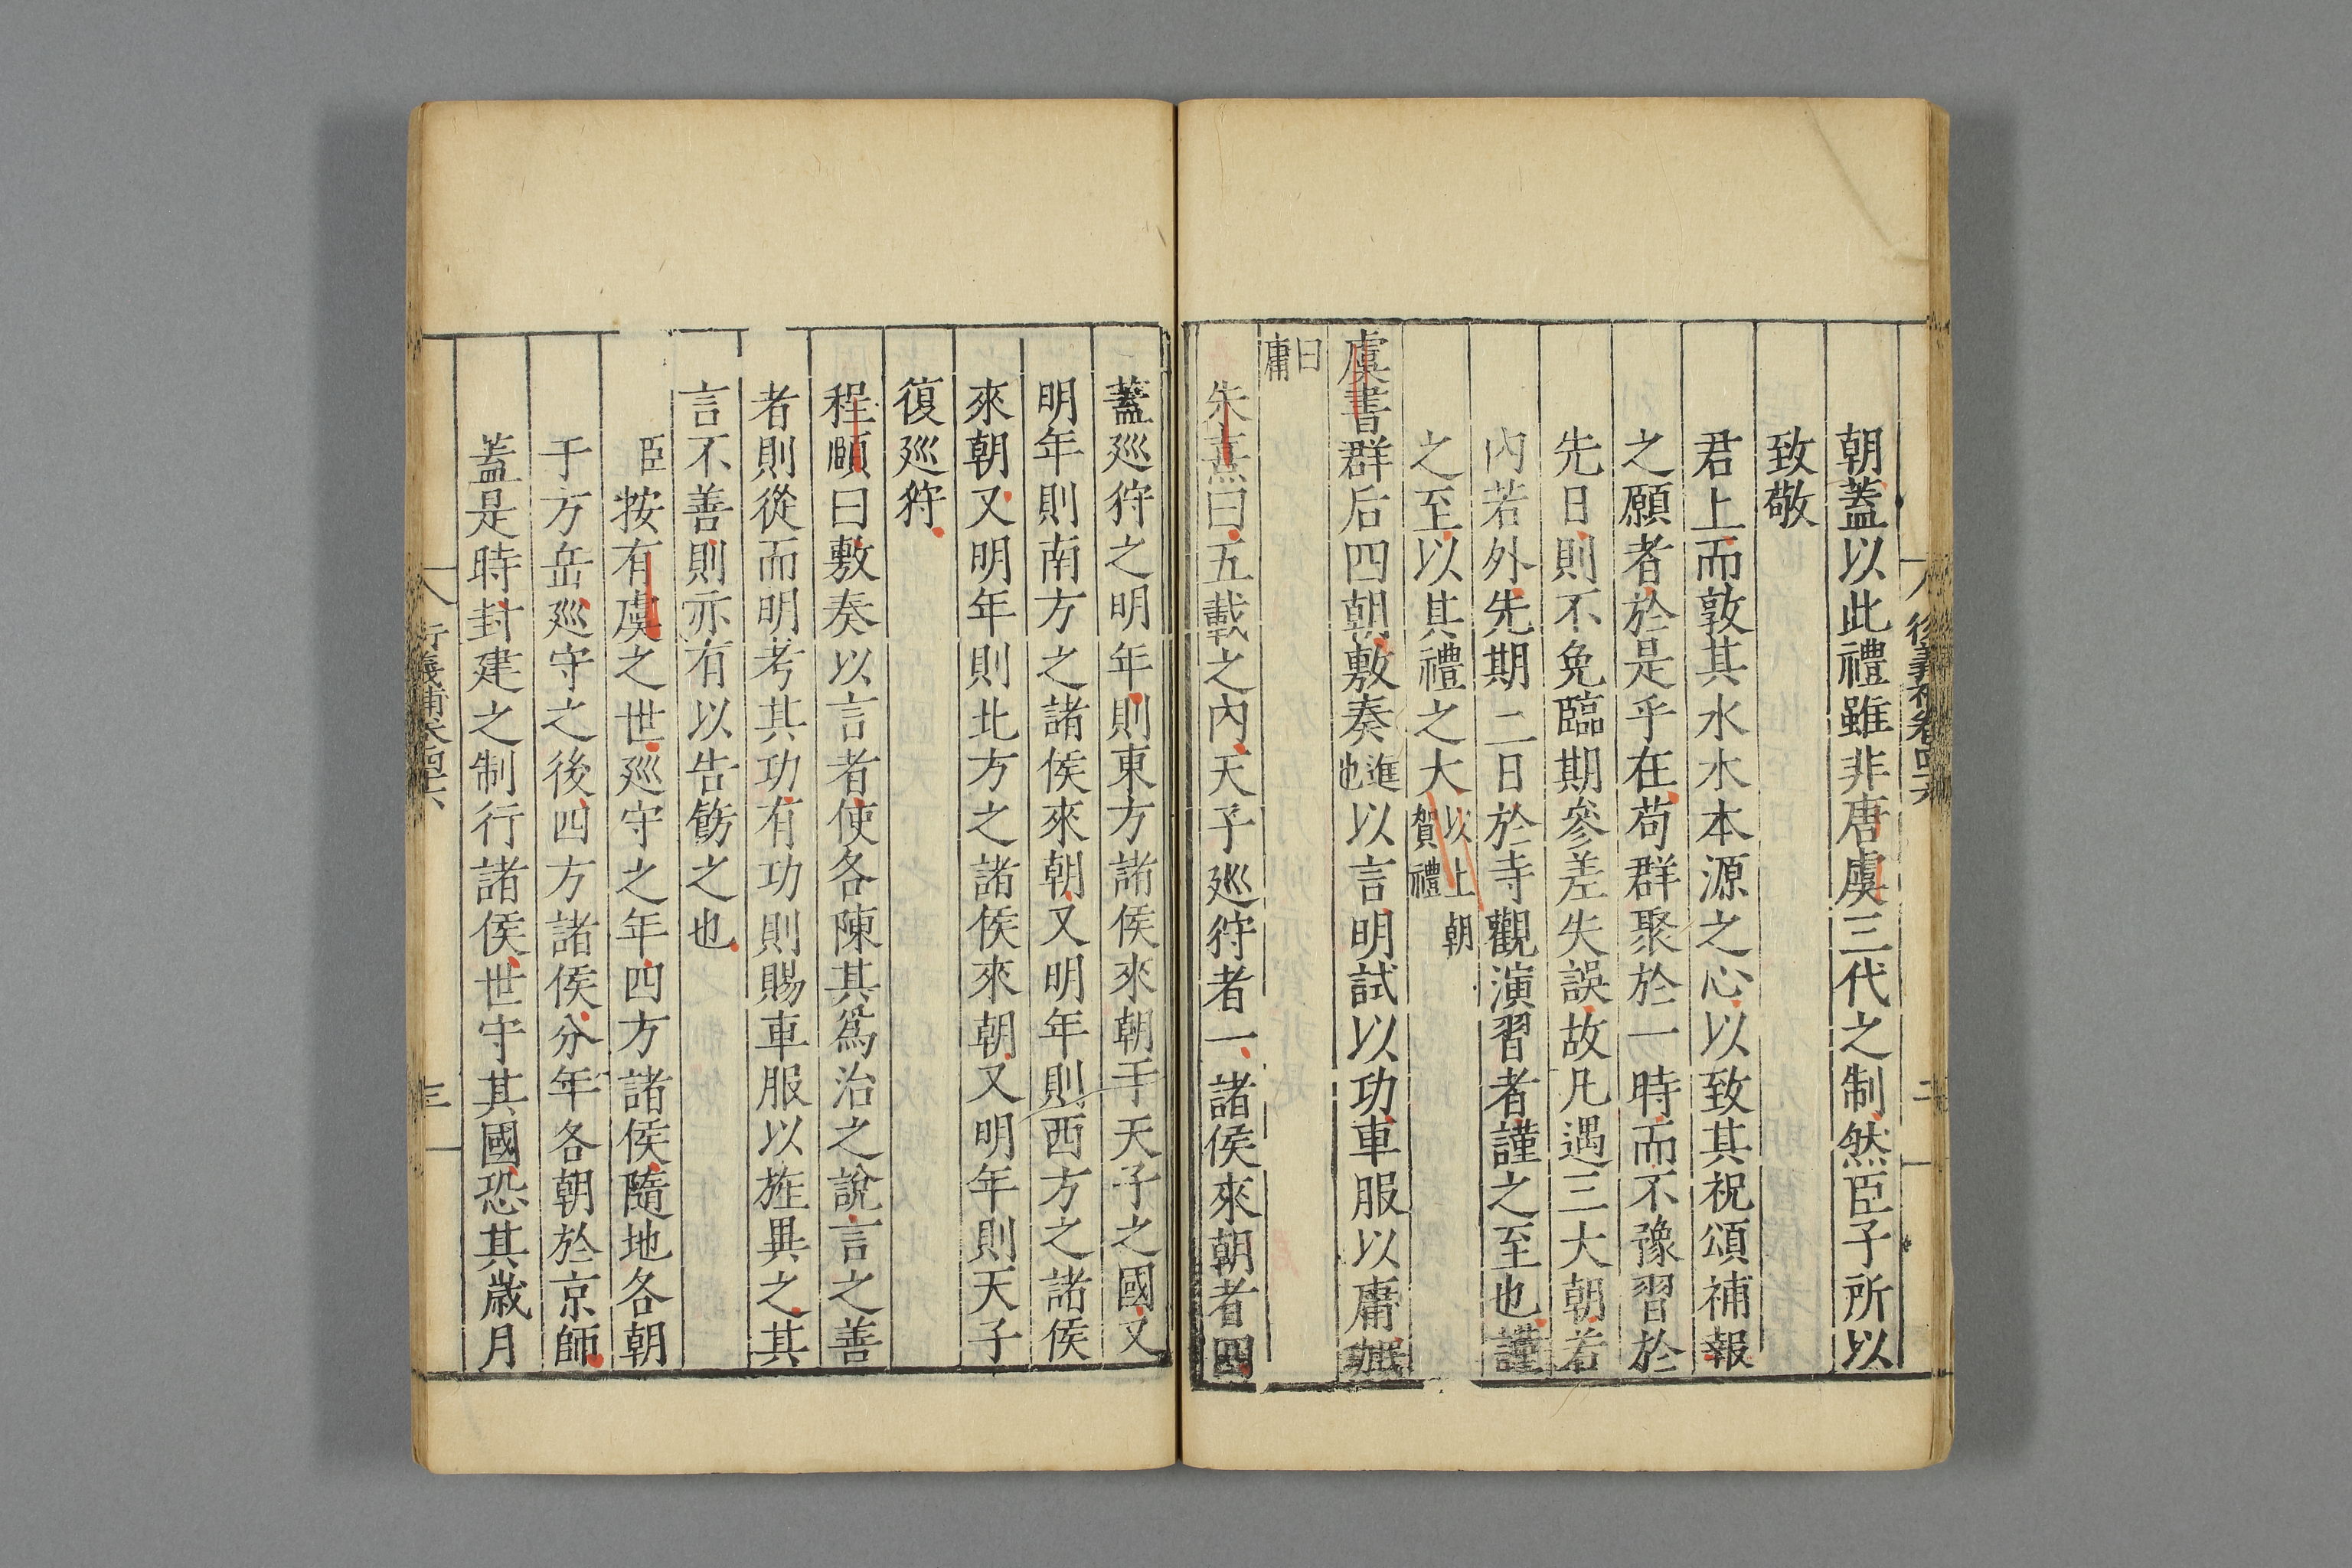 朝蓋以此禮雖非唐虞三代之制然臣子所以
致敬
君上而敦其水木本源之心以致其祝頌補報
之願者於是乎在苟群聚於一時而不豫習於
先日則不免臨期參差失誤故凡遇三大朝若
內若外先期二日於寺觀演習者謹之至也謹
之至以其禮之大以上朝賀禮
虞書群后四朝敷奏進也以言明試以功車服以庸
曰庸
朱熹曰五載之內天子廵狩者一諸侯來朝者四
蓋廵狩之明年則東方諸侯來朝于天子之國又
明年則南方之諸侯來朝又明年則西方之諸侯
來朝又明年則北方之諸侯來朝又明年則天子
復廵狩
程頤曰敷奏以言者使各陳其爲治之說言之善
者則從而明考其功有功則賜車服以旌異之其
言不善則亦有以告飭之也
臣按有虞之世廵守之年四方諸侯隨地各朝
于方岳廵守之後四方諸侯分年各朝於京師
蓋是時封建之制行諸侯世守其國恐其歲月
三